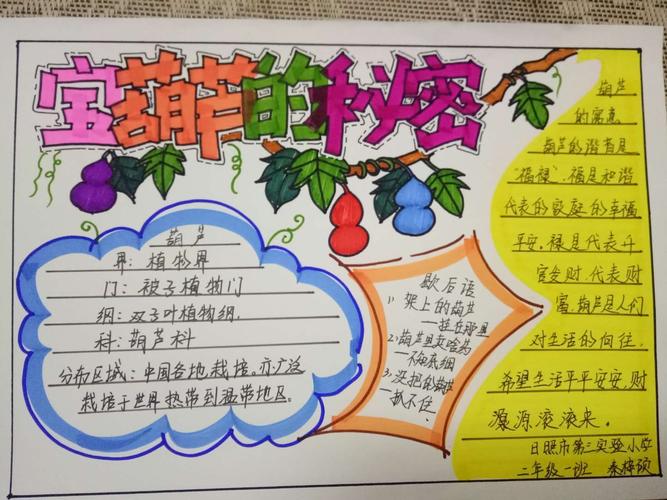 宝葫芦的秘密
葫芦
界：植物界
门：被子植物门
纲：双子叶植物纲.
科：葫芦科
分布区域：中国各地栽培.亦广泛
栽培于世界热带到温带地区.
歇后语
1) 架上的葫芦
—挂在那里
2) 葫芦里卖啥药
—不知底细
3. 没把的葫芦
—抓不住.
葫芦
的寓意
葫芦的谐音是
“福禄”.福是和谐
代表的家庭的幸福
平安.禄是代表升
官发财.代表财
富.葫芦是人们
对生活的向往.
希望生活平平安安,财
源滚滚来。
日照市第三实验小学
二年级一班 秦梓硕